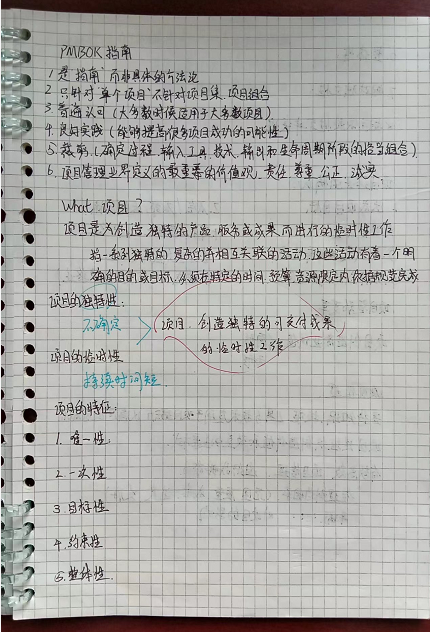 PMBOK 指南
1. 是"指南"而非具体的方法论
2. 只针对"单个项目"不针对项目集、项目组合
3. 普遍认可（大多数时候适用于大多数项目）
4. 良好实践（能够提高很多项目成功的可能性）
5. 裁剪（确定过程、输入、工具、技术、输出和生命周期阶段的恰当组合）
6. 项目管理业界定义的最重要的价值观：责任、尊重、公正、诚实
What 项目？
项目是为创造独特的产品、服务或成果而进行的临时性工作
指一系列独特的、复杂的并相互关联的活动，这些活动有着一个明
确的目的或目标，必须在特定的时间、预算、资源限定内，依据规范完成
项目的独特性：
不确定
项目：创造独特的可交付成果
的临时性工作
项目的临时性
持续时间短
项目的特征：
1. 唯一性
2. 一次性
3. 目标性
4. 约束性
5. 整体性